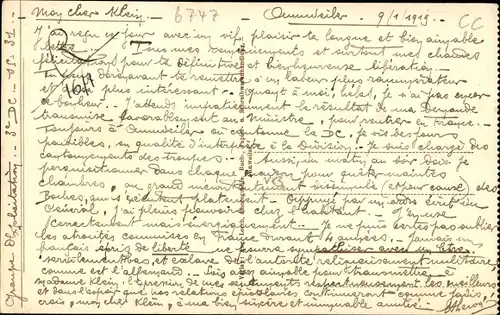 Mon cher Klein, 6747 Ommweiler 9/1/1919. CC
J'ai reçu ce jour avec un vif plaisir ta longue et bien aimable
lettre. Tous mes remerciements et surtout mes chaudes
félicitations pour ta définitive et bienheureuse libération.
Tu peux dorénavant te remettre à un labeur plus rémunérateur
et plus intéressant. Quant à moi, hélas, je n'ai pas encore
ce bonheur. J'attends impatiemment le résultat de ma demande
transmise favorablement au Ministre, pour rentrer en France.
Toujours à Ommweiler où cantonne la DC, je vis des jours
paisibles, en qualité d'interprète à la Division. Je suis chargé des
cantonnements des troupes. Aussi, du matin au soir dois-je
perquisitionner dans chaque maison pour quêter maintes
chambres, au grand mécontentement visible (et pour cause) des
Boches, qui s'exécutent platement. Appuyé par un ordre écrit du
Général, j'ai pleins pouvoirs chez l'habitant. J'en use
correctement mais énergiquement. Je ne puis certes pas oublier
les atrocités commises en France durant 4 années. Jamais un
français épris de liberté ne pourra sympathiser avec un être
servilement bas, et esclave de l'autorité religieusement militaire,
comme est l'allemand. Sois assez aimable pour transmettre à
Madame Klein, l'expression de mes sentiments respectueusement les meilleurs
et dans l'espoir que nos relations épistolaires continueront comme jadis,
crois, mon cher Klein, à ma bien sincère et immuable amitié.
Groupe d'Exploitation - 3e DC - SP. 31 -